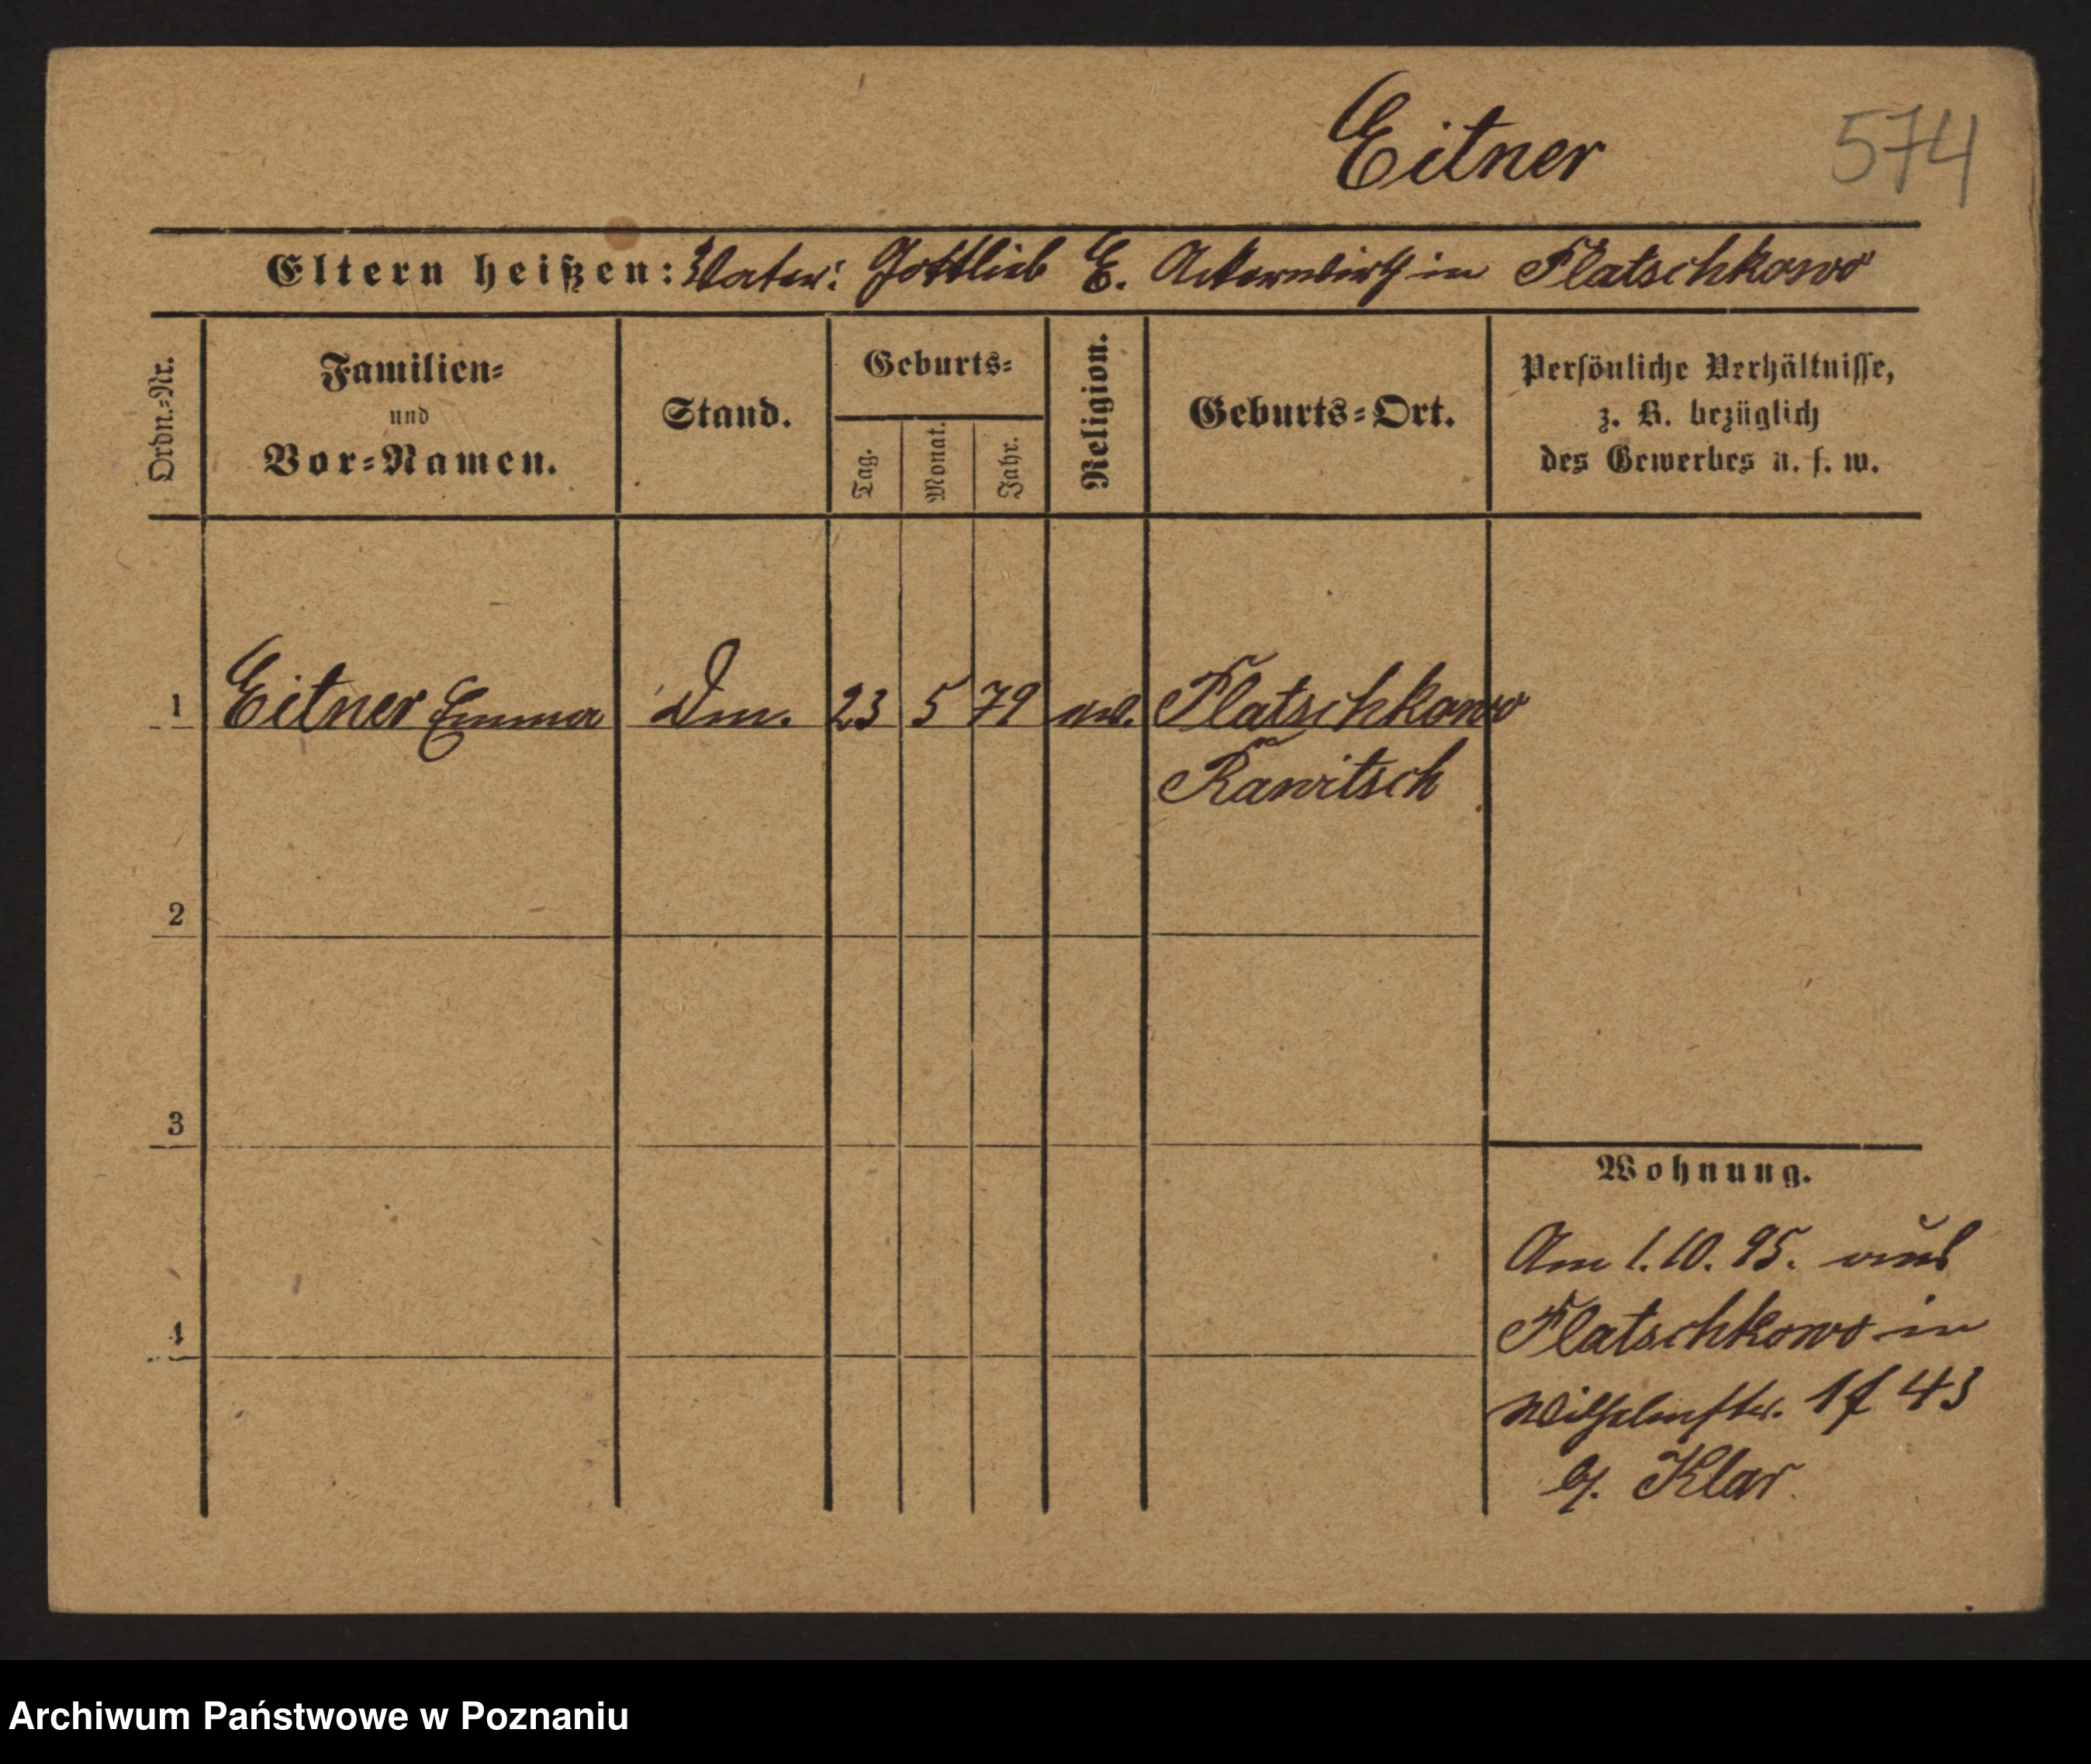 Eitner 574
Eltern heißen: Vater: Gottlieb E. Ackerwirth in Platschkowo
Ordn.-Nr.
Familien- und Vor-Namen.
Stand.
Geburts-
Tag. Monat. Jahr.
Religion.
Geburts-Ort.
Persönliche Verhältnisse,
z. B. bezüglich
des Gewerbes u. s. w.
1 Eitner Emma Dm. 23 5 79 Platschkowo
Rawitsch
2
3
4
Wohnung.
Am 1.10.95. aus
Platschkowo in
Wilhelmstr. 43
b/. Klar.
Archiwum Państwowe w Poznaniu